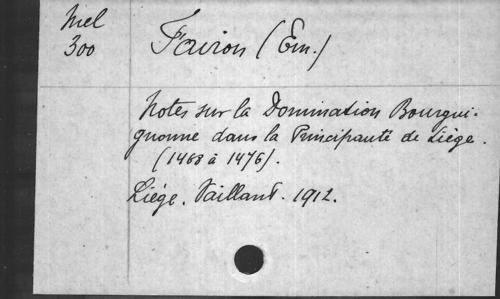 Mel
300
Fairon (Em.)
Notes sur la Domination Bourgui-
gnonne dans la Principauté de Liège.
(1468 à 1476).
Liége. Vaillant. 1912.